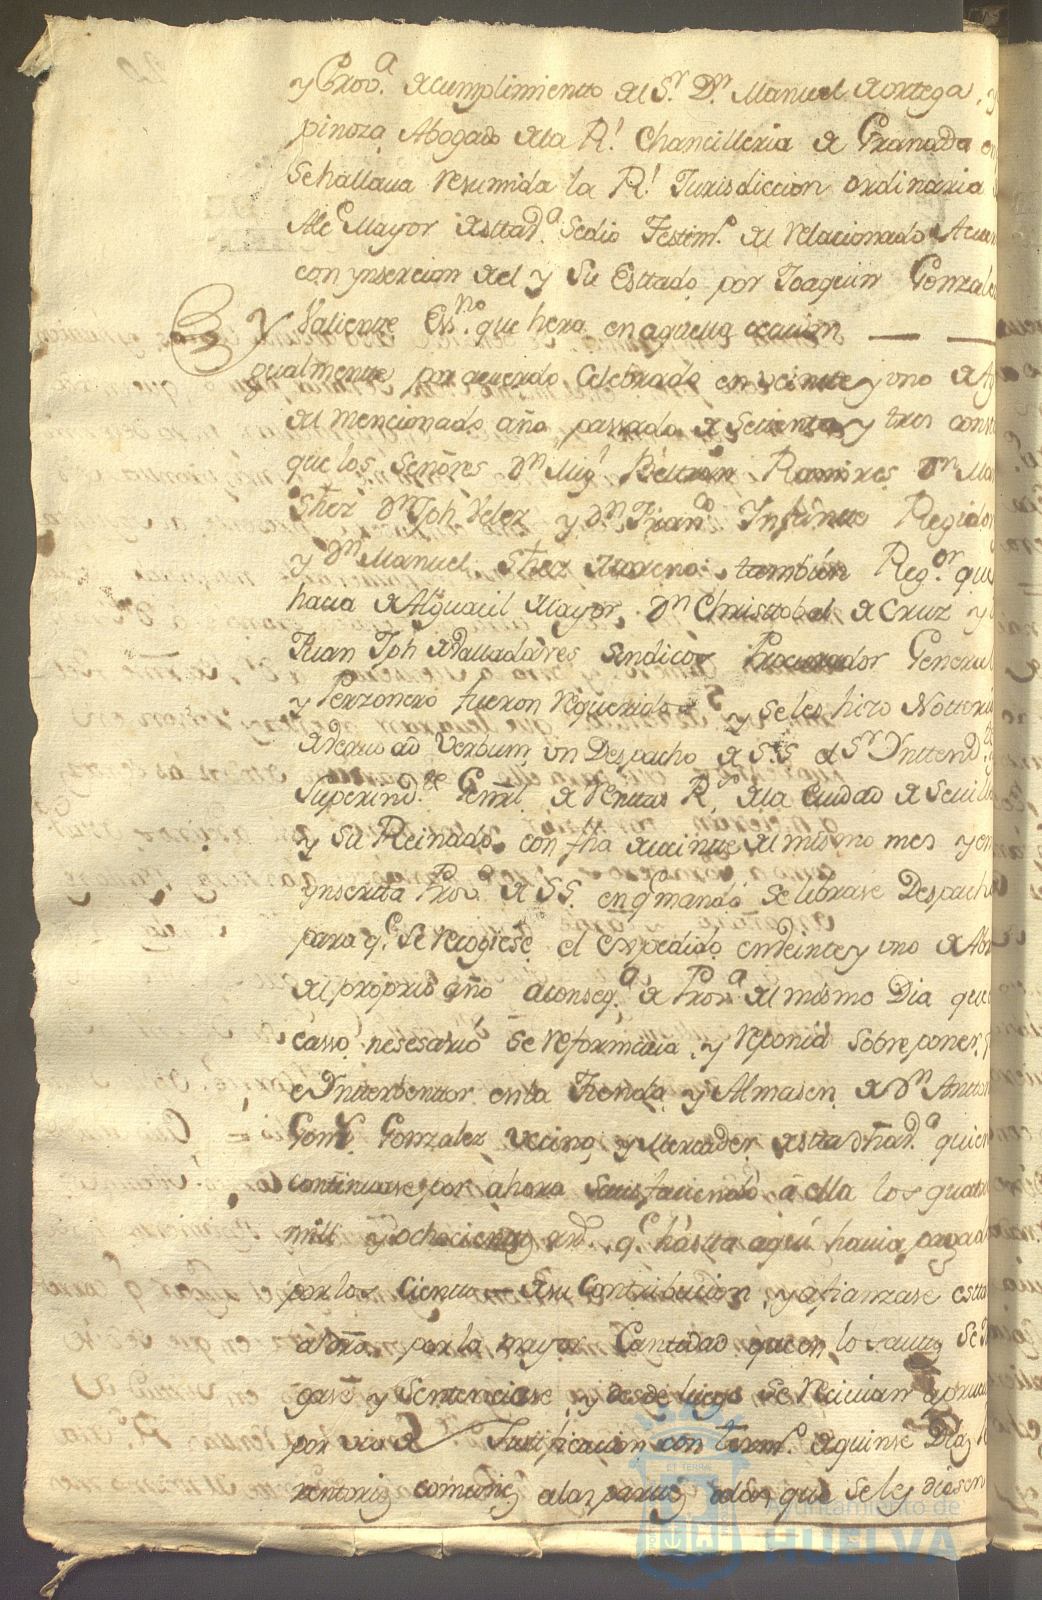 y Provª. dcumplimiento del Sr. Dn. Manuel de ortega,
pinoza Abogado dela Rl. Chancilleria de Granada en
Se hallava resumida la Rl. Jurisdiccion ordinaria
Alc Mayor desttadª. Se dio Testimº. del relacionado
con ynsercion de el y Su Esttado por Joaquin Gonzalez
Y Valiente Essno. que hera en aquella
gualmente por acuerdo Celebrado en veinte y uno de
del mencionado año passado de Settenta y tres
que los Señores Dn Migl Beltran Ramires Dn
Shez Dn Jph Velez y Dn Franco Infante
y Dn Manuel Shez Moreno tambien Regor. que
hacia de Alguacil Mayor, Dn Christtobal de Cruz y
Juan Jph de Valladares Sindicos Procurador General
y Perzonero fueron requeridos y se les hizo
de verbo ad Verbum un Despacho de S.S. el Sr Ynttendte.
Superindte. Genrl. de Renttas Rs. dela Ciudad de Sevilla
y su Reinado con fha de veinte del mismo mes y en
ynserta Provª de SS. en q mandó Se librase Despacho
para qe. se recogiese el expedido en veinte y uno de
del proprio año a conseqª. de Provª del mismo Dia que
casso nesesario se reformava, y reponia sobre poner
e Yntterbentor en la Tienda y Almasen de Dn
Gonzalez vecino y Mercader desttadhadª. quien
continuase por ahora Sattisfaciendo a ella los
mill y ochocientos rrs. qe. hastta aqui havia
por los Cientos de su Contribucion y afianzase
por la mayor Cantidad que en lo Se
gase y Sentenciase y desde luego Se recivian
por via de Justificacion con termº. de quinse Dias
comunes alas parttes que se les diesen
Ayuntamiento de
HUELVA